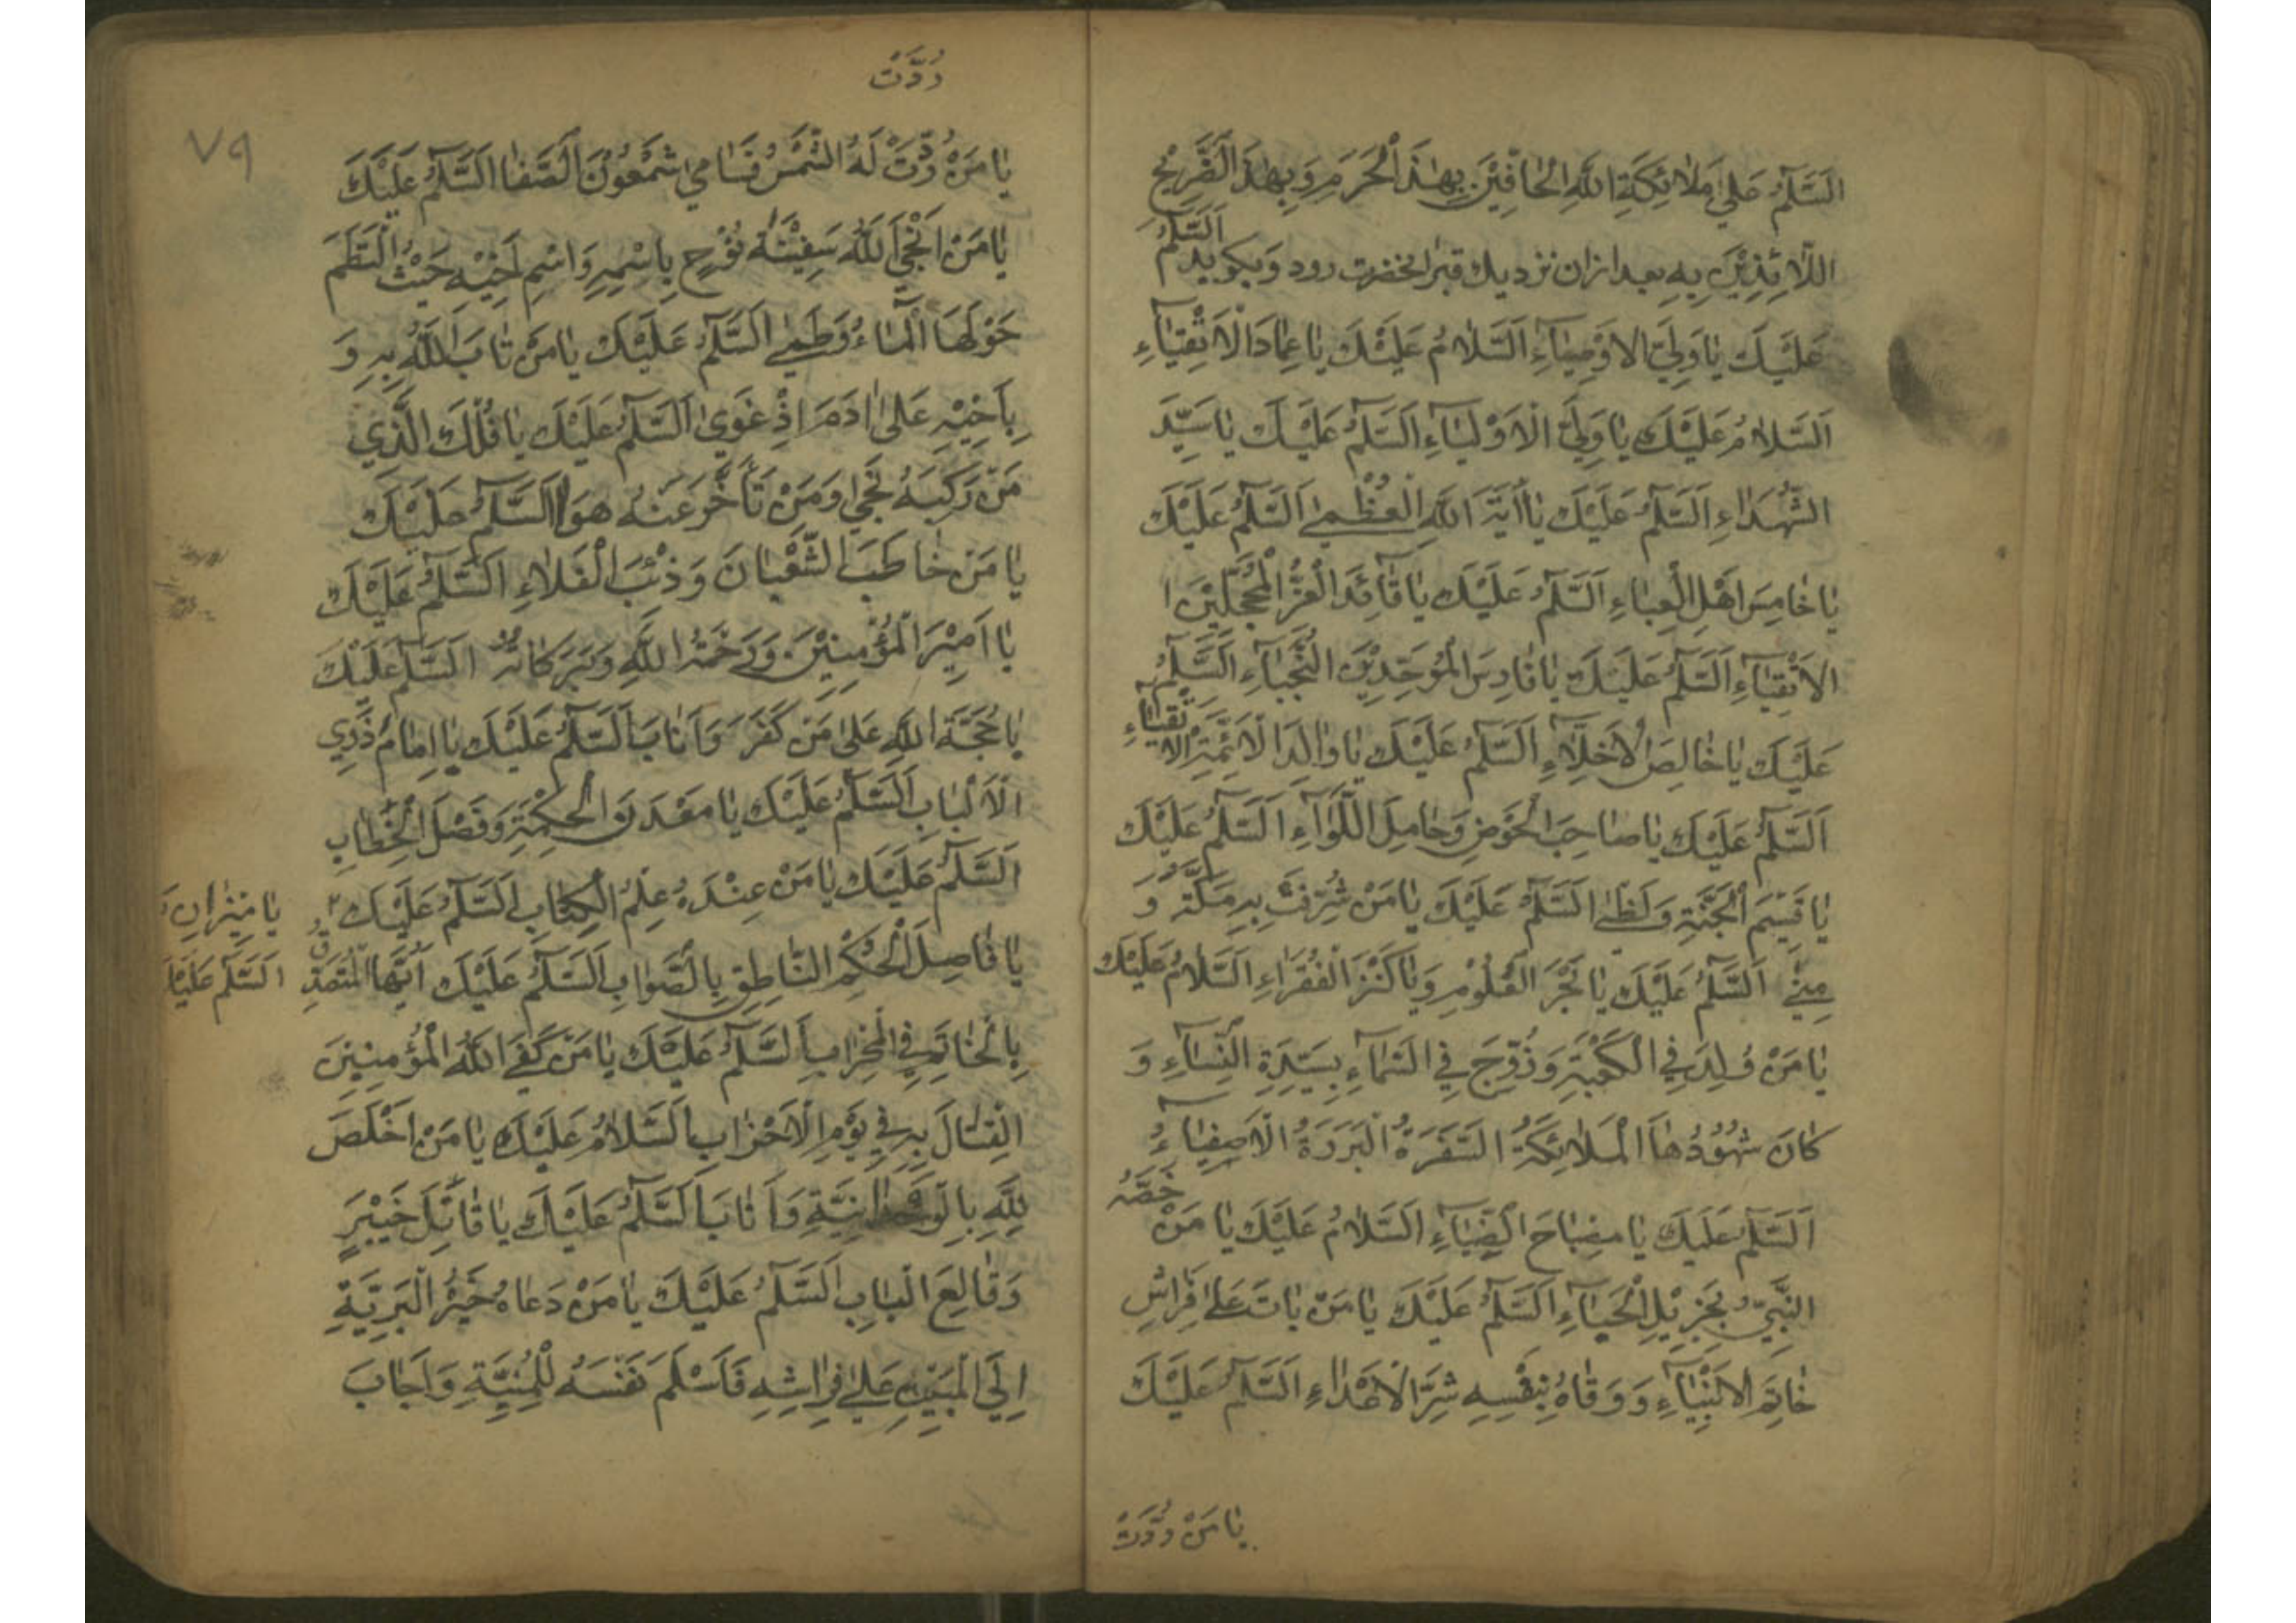 السَّلٰمُ عَلٰي مَلٰائِكَةِ اللّٰهِ الْحٰافِّيْنَ بِهٰذَ الْحَرَمِ وَبِهٰذَ الضَّرِيْحِ
اللّٰائِذِيْنَ بِهِ بعد ازان نزديك قبر انحضرت رود و بكويد اَلسَّلٰمُ
عَلَيْكَ يٰا وَلِيَّ الاَوْصِيٰاۤءِ اَلسَّلٰامُ عَلَيْكَ يٰا عِمٰادَ الْاَتْقِيٰاۤءِ
اَلسَّلٰامُ عَلَيْكَ يٰا وَلِيَّ الْاَوْلِيٰاۤءِ اَلسَّلٰمُ عَلَيْكَ يٰا سَيِّدَ
الشُّهَدٰاۤءِ اَلسَّلٰمُ عَلَيْكَ يٰا اٰيَةَ اللّٰهِ الْعُظْمٰي اَلسَّلٰمُ عَلَيْكَ
يٰا خٰامِسَ اَهْلِ الْعِبٰاۤءِ اَلسَّلٰمُ عَلَيْكَ يٰا قٰاۤئِدَ الْغُرِّ الْمُحَجَّلِيْنَ ا
الاَتْقِيٰاۤءِ اَلسَّلٰمُ عَلَيْكَ يٰا فٰارِسَ الْمُوَحِّدِيْنَ النُّجَبٰاۤءِ اَلسَّلٰمُ
عَلَيْكَ يٰا خٰالِصَ الْاَخِلّٰاۤءِ اَلسَّلٰمُ عَلَيْكَ يٰا وٰالِدَ الْاَئِمَّةِ الْاَتْقِيٰاۤءِ
اَلسَّلٰمُ عَلَيْكَ يٰا صٰاحِبَ الْحَوْضِ وَحٰامِلَ اللِّوٰاۤءِ اَلسَّلٰمُ عَلَيْكَ
يٰا قَسِيْمَ الْجَنَّةِ وَلَظٰي اَلسَّلٰمُ عَلَيْكَ يٰا مَنْ شُرِّفَتْ بِهِ مَكَّةُ وَ
مِنٰي اَلسَّلٰمُ عَلَيْكَ يٰا بَحْرَ الْعُلُوْمِ وَيٰا كَنْزَ الْفُقَرٰاۤءِ اَلسَّلٰامُ عَلَيْكَ
يٰا مَنْ وُلِدَ فِي الْكَعْبَةِ وَزُوِّجَ فِي السَّمٰاۤءِ بِسَيِّدَةِ النِّسٰاۤءِ وَ
كٰانَ شُهُوْدُهٰا الْمَلٰائِكَةُ السَّفَرَةُ الْبَرَرَةُ الْاَصْفِيٰاۤءُ
اَلسَّلٰمُ عَلَيْكَ يٰا مِصْبٰاحَ الضِّيٰاۤءِ اَلسَّلٰامُ عَلَيْكَ يٰا مَنْ خَصَّهُ
النَّبِيُّ بِجَزِيْلِ الْحَبٰاۤءِ اَلسَّلٰمُ عَلَيْكَ يٰا مَنْ بٰاتَ عَلٰي فِرٰاشِ
خٰاتِمِ الاَنْبِيٰاۤءِ وَوَقٰاهُ بِنَفْسِهِ شَرَّ الْاَعْدٰاۤءِ اَلسَّلٰمُ عَلَيْكَ
يٰا مَنْ رُدَّتْ
رُدَّتْ
٧٩
يٰا مَنْ رُدَّتْ لَهُ الشَّمْسُ فَسٰامِي شَمْعُوْنَ الصَّفٰا اَلسَّلٰمُ عَلَيْكَ
يٰا مَنْ اَنْجَي اللّٰهُ سَفِيْنَةَ نُوْحٍ بِاسْمِهِ وَاسْمِ اَخِيْهِ حَيْثُ الْتَطَمَ
حَوْلَهَا الْمٰاۤءُ وَطَمٰي اَلسَّلٰمُ عَلَيْكَ يٰا مَنْ تٰابَ اللّٰهُ بِهِ وَ
بِاَخِيْهِ عَلٰي اٰدَمَ اِذْ غَوٰي اَلسَّلٰمُ عَلَيْكَ يٰا فُلْكَ الَّذِي
مَنْ رَكِبَهُ نَجٰي وَمَنْ تَأَخَّرَ عَنْهُ هَوٰا اَلسَّلٰمُ عَلَيْكَ
يٰا مَنْ خٰاطَبَ الثُّعْبٰانَ وَذِئْبَ الْفَلٰاءِ اَلسَّلٰمُ عَلَيْكَ
يٰا اَمِيْرَ الْمُؤْمِنِيْنَ وَرَحْمَةُ اللّٰهِ وَبَرَكٰاتُهُ اَلسَّلٰمُ عَلَيْكَ
يٰا حُجَّةَ اللّٰهِ عَلٰي مَنْ كَفَرَ وَاَنٰابَ اَلسَّلٰمُ عَلَيْكَ يٰا اِمٰامَ ذَوِي
الْاَلْبٰابِ اَلسَّلٰمُ عَلَيْكَ يٰا مَعْدَنَ الْحِكْمَةِ وَفَصْلَ الْخِطٰابِ
اَلسَّلٰمُ عَلَيْكَ يٰا مَنْ عِنْدَهُ عِلْمُ الْكِتٰابِ اَلسَّلٰمُ عَلَيْكَ
يٰا مِيْزٰانَ
اَلسَّلٰمُ عَلَيْكَ
يٰا فٰاصِلَ الْحُكْمِ النّٰاطِقِ بِالصَّوٰابِ اَلسَّلٰمُ عَلَيْكَ اَيُّهَا الْمُتَصَدِّقُ
بِالْخٰاتَمِ فِي الْمِحْرٰابِ اَلسَّلٰمُ عَلَيْكَ يٰا مَنْ كَفَي اللّٰهُ الْمُؤْمِنِيْنَ
الْقِتٰالَ بِهِ فِي يَوْمِ الْاَحْزٰابِ اَلسَّلٰامُ عَلَيْكَ يٰا مَنْ اَخْلَصَ
لِلّٰهِ بِالْوَحْدٰانِيَّةِ وَاَنٰابَ اَلسَّلٰمُ عَلَيْكَ يٰا قٰاتِلَ خَيْبَرٍ
وَقٰالِعَ الْبٰابِ اَلسَّلٰمُ عَلَيْكَ يٰا مَنْ دَعٰاهُ خَيْرُ الْبَرِيَّةِ
اِلَي الْمَبِيْتِ عَلٰي فِرٰاشِهِ فَاَسْلَمَ نَفْسَهُ لِلْمَنِيَّةِ وَاَجٰابَ